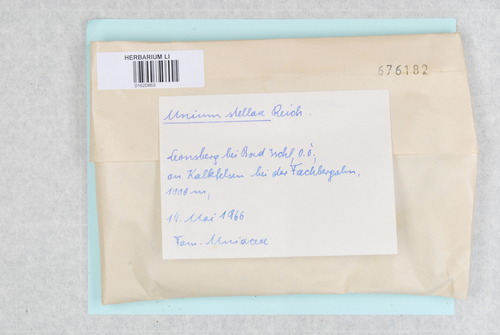 HERBARIUM LI
01620863
676182
Mnium stellare Reich.
Leonsberg bei Bad Ischl, O.Ö;
an Kalkfelsen bei der Fachbergalm,
1000 m,
14. Mai 1966
Fam. Mniaceae